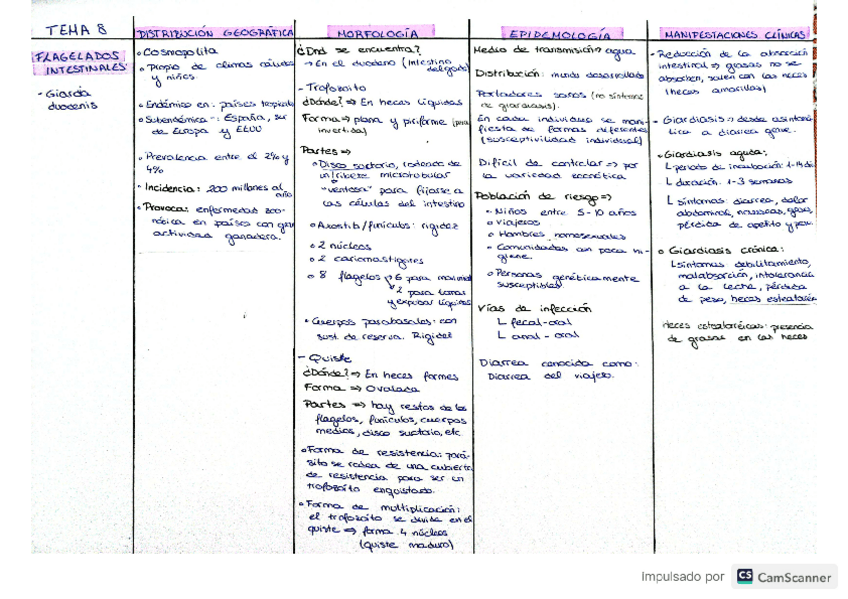 TEMA 8
FLAGELADOS
INTESTINALES
- Giardia
duodenis
DISTRIBUCIÓN GEOGRÁFICA
• Cosmopolita
• Propio de climas cálidos
y niños
• Endémico en: países tropicale
• Subendémica -: España, sur
de Europa y EEUU
• Prevalencia entre el 2% y
4%
• Incidencia: 200 millones al
año
• Provoca: enfermedad zoo-
nótica en países con gran
actividad ganadera.
MORFOLOGÍA
¿Dnd se encuentra?
→ En el duodeno (intestino
delgado)
- Trofozoito
¿Dónde? ⇒ En heces líquidas
Forma ⇒ plana y piriforme (pera
invertida)
Partes ⇒
• Disco suctorio, rodeado de
un ribete microtubular
"ventosa" para fijarse a
las células del intestino
• Axostilo/funículos: rigidez
• 2 núcleos
• 2 cariomastigontes
• 8 flagelos → 6 para movimi
2 para tomar
y expulsar líquidos
• Cuerpos parabasales: con
sust. de reserva. Rigidez
- Quiste
¿Dónde? ⇒ En heces formes
Forma ⇒ Ovalada
Partes ⇒ hay restos de los
flagelos, funículos, cuerpos
medios, disco suctorio, etc
• Forma de resistencia: pará-
sito se rodea de una cubierta
de resistencia para ser un
trofozoito enquistado.
• Forma de multiplicación:
el trofozoito se divide en el
quiste ⇒ forma 4 núcleos
(quiste maduro)
EPIDEMOLOGÍA
Medio de transmisión ⇒ agua
Distribución: mundo desarrollado
Portadores sanos (no síntomas
de giardiasis).
En cada individuo se mani-
fiesta de formas diferentes
(susceptividad individual)
Difícil de controlar ⇒ por
la variedad genética
Población de riesgo ⇒
• Niños entre 5-10 años
• Viajeros
• Hombres homosexuales
• Comunidades con poca hi-
giene.
• Personas genéticamente
susceptibles
Vías de infección
L fecal-oral
L anal-oral
Diarrea conocida como:
Diarrea del viajero.
MANIFESTACIONES CLÍNICAS
- Reducción de la absorción
intestinal ⇒ grasas no se
absorben, salen con las heces
(heces amarillas)
- Giardiasis ⇒ desde asintomá-
tica a diarrea grave.
• Giardiasis aguda:
L periodo de incubación: 1-14 día
L duración: 1-3 semanas
L síntomas diarrea, dolor
abdominal, nauseas, gases,
pérdida de apetito y peso
• Giardiasis crónica:
L síntomas debilitamiento,
malabsorción, intolerancia
a la leche, pérdida
de peso, heces esteatoréic
Heces esteatoréicas: presencia
de grasas en las heces
Impulsado por CS CamScanner